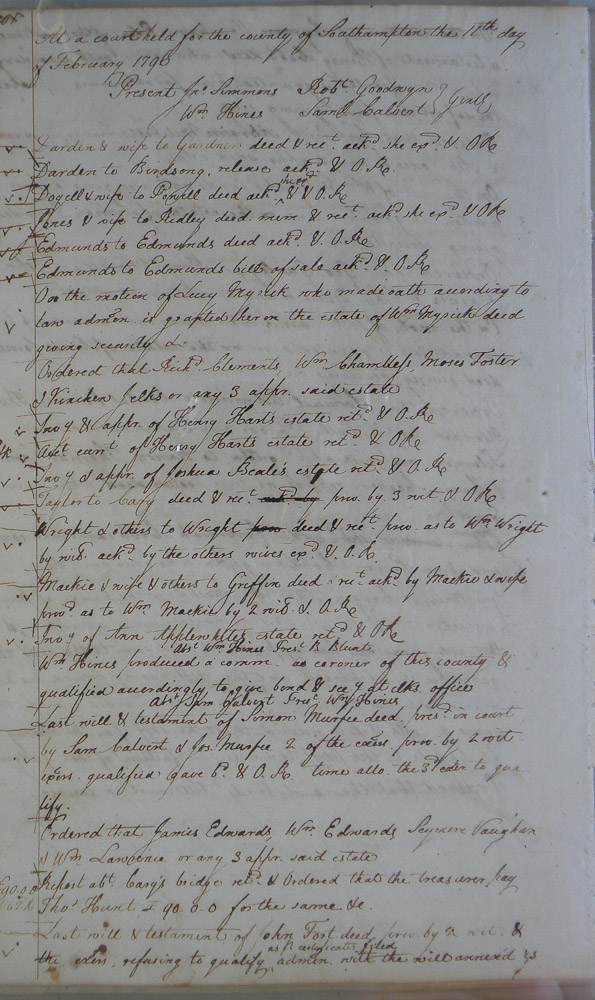 At a court held for the county of Southampton the 11th day
of February 1796
Present Jno. Simmons Robt. Goodwyn
Wm Hines Saml Calvert } Gentn
Darden & wife to Gardner deed & rect. ackd. she exd. & O.Re
Darden to Birdsong release ackd. & O.Re.
Doyell & wife to Powell deed ackd. she exd. & O.Re
Jones & wife to Ridley deed mem. & rect. ackd she exd. & ORe
Edmunds to Edmunds deed ackd. & O.Re
Edmunds to Edmunds bill of sale ackd. & O.Re
On the motion of Lucy Myrick who made oath according to
law admōn. is granted her on the estate of Wm Myrick deced
giving security &.
Ordered that Richd. Clements, Wm Chambless, Moses Foster
& Kinchen Jelks or any 3 appr. said estate
Invy & appr. of Henry Hart's estate retd. & O.Re
Acct. currt. of Henry Harts estate retd & ORe
Invy & appr. of Joshua Beale's estate retd. & O.Re
Taylor to Cary deed & rect. ackd by prov. by 3 wit & O.Re
Wright & others to Wright prov deed & rect. prov. as to Wm Wright
by wits. ackd. by the others wives exd. & O.Re.
Mackie & wife & others to Griffin deed & rect. ackd. by Mackie & wife
provd as to Wm Mackie by 2 wits & O.Re
Invy of Ann Applewhites estate retd. & ORe
Abst. Wm Hines Prest. B. Blunt
Wm Hines produced a comm. as coroner of this county &
qualified accordingly, to give bond & secy at clks. office
Abst. Sam Calvert Prest. Wm Hines
Last will & testament of Simon Murfee deced. presd. in court
by Sam Calvert & Jos. Murfee 2 of the exōrs prov. by 2 wit
exōrs. qualified gave bd. & O.Re. time allo. the 3d exōr to qua
lify.
Ordered that James Edwards, Wm. Edwards Seymore Vaughan
& Wm Lawrence or any 3 appr. said estate
£90.0.0 Report abt. Cary's bridge retd. & Ordered that the treasurer pay
Thos Hunt £ 90.0.0 for the same &c.
Last will & testament of John Fort deced. prov. by 2 wit. &
as pr. certificates filed
the exōrs. refusing to qualify admōn. with the will annex'd is